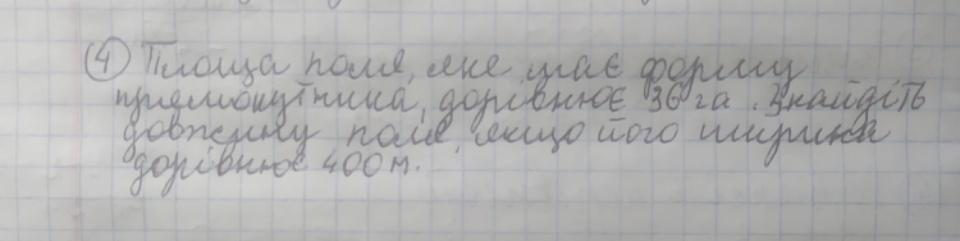 4 Площа поля, яке має форму
прямокутника, дорівнює 36 га. Знайдіть
довжину поля, якщо його ширина
дорівнює 400 м.